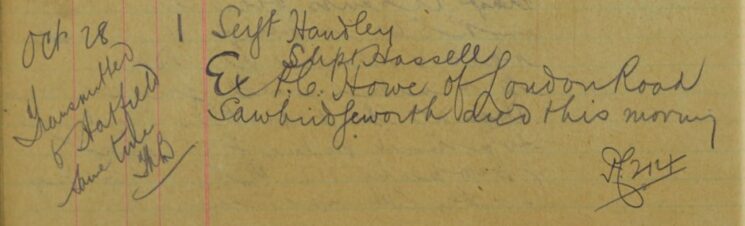 Oct 28
Transmitted
to Hatfield
same time
1
Sergt Handley
Supt Hassell
Ex P.C. Howe of London Road
Sawbridgeworth died this morning
PC 214